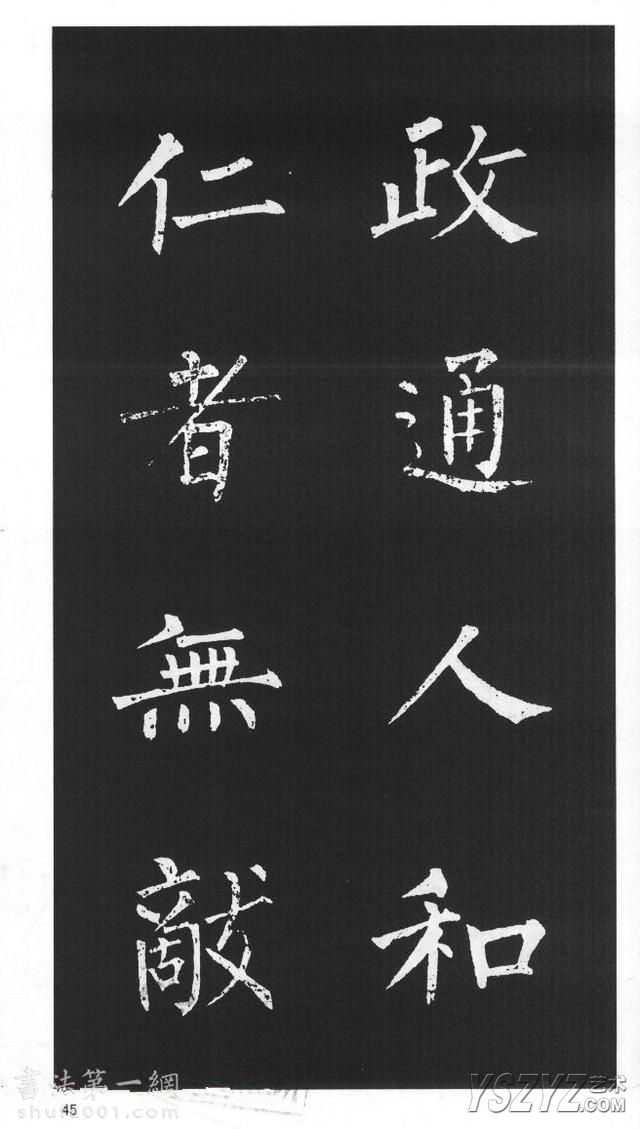 政通人和
仁者無敵
書法第一網
shufa001.com
45
YSZYZ艺术.COM